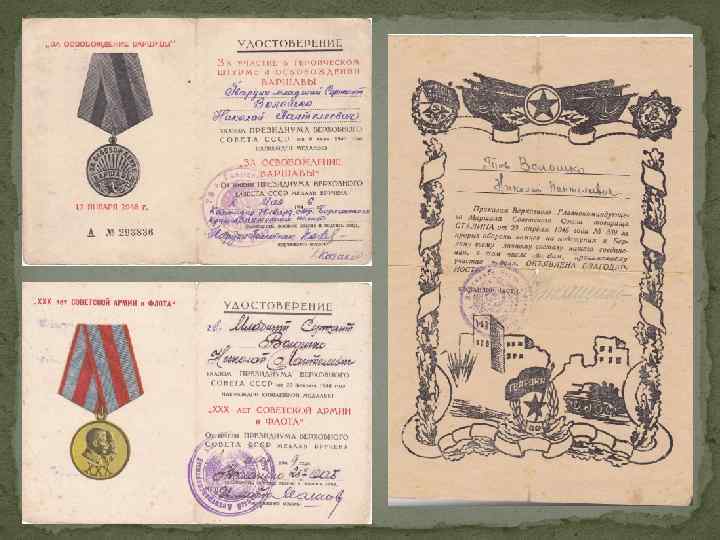 „ЗА ОСВОБОЖДЕНИЕ ВАРШАВЫ"
17 ЯНВАРЯ 1945 г.
А № 293836
УДОСТОВЕРЕНИЕ
ЗА УЧАСТИЕ В ГЕРОИЧЕСКОМ
ШТУРМЕ И ОСВОБОЖДЕНИИ
ВАРШАВЫ
Гвардии младший Сержант
Волошко
Николай Пантелеевич
УКАЗОМ ПРЕЗИДИУМА ВЕРХОВНОГО
СОВЕТА СССР от 9 июня 1945 года
НАГРАЖДЕН МЕДАЛЬЮ
„ЗА ОСВОБОЖДЕНИЕ
ВАРШАВЫ"
От имени ПРЕЗИДИУМА ВЕРХОВНОГО
СОВЕТА СССР МЕДАЛЬ ВРУЧЕНА
Мая 194 6
„XXX лет СОВЕТСКОЙ АРМИИ и ФЛОТА"
XXX
УДОСТОВЕРЕНИЕ
Младший Сержант
Волошко
Николай Пантелеевич
УКАЗОМ ПРЕЗИДИУМА ВЕРХОВНОГО
СОВЕТА СССР от 22 февраля 1948 года
НАГРАЖДЕН ЮБИЛЕЙНОЙ МЕДАЛЬЮ
„XXX ЛЕТ СОВЕТСКОЙ АРМИИ
и ФЛОТА"
От имени ПРЕЗИДИУМА ВЕРХОВНОГО
СОВЕТА СССР МЕДАЛЬ ВРУЧЕНА
Тов Волошко
Николай Пантелеевич
Приказом Верховного Главнокомандующе-
го Маршала Советского Союза товарища
СТАЛИНА от 23 апреля 1945 года № 339 за
прорыв обороны немцев и наступление на Бер-
лин всему личному составу нашего соедине-
ния, в том числе и Вам, принимавшему
участие в боях, ОБЪЯВЛЕНА БЛАГОДАР-
НОСТЬ
КОМАНДИР ЧАСТИ
ГВАРДИЯ